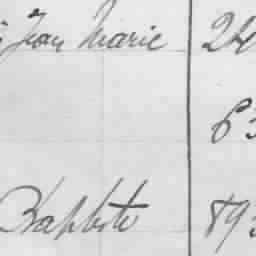 Jean Marie 24
63
Baptiste 893